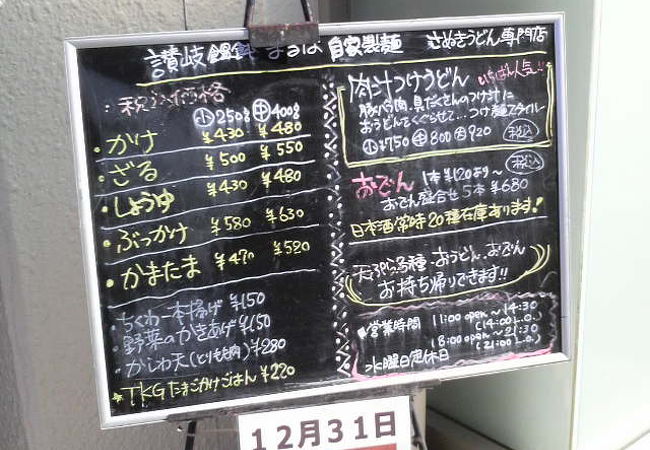 讃岐饂飩 まるは 自家製麺 さぬきうどん専門店
税込価格
小250g 中400g
・かけ ¥430 ¥480
・ざる ¥500 ¥550
・しょうゆ ¥430 ¥480
・ぶっかけ ¥580 ¥630
・かまたま ¥470 ¥520
・ちくわ一本揚げ ¥150
・野菜のかきあげ ¥150
・かしわ天(とりもも肉) ¥280
★TKGたまごかけごはん ¥220
肉汁つけうどん いちばん人気!!
豚バラ肉、具だくさんのつけ汁に
おうどんをくぐらせて…つけ麺スタイル
小¥750 中800 大920 税込
おでん 1本¥120より~ 税込
おでん盛合せ5本¥680
日本酒常時20種在庫あります!
天ぷら各種・おうどん・おでん
お持ち帰りできます!!
■営業時間 11:00 open~14:30
(14:00 L.O.)
18:00 open~21:30
(21:00 L.O.)
水曜日定休日
12月31日